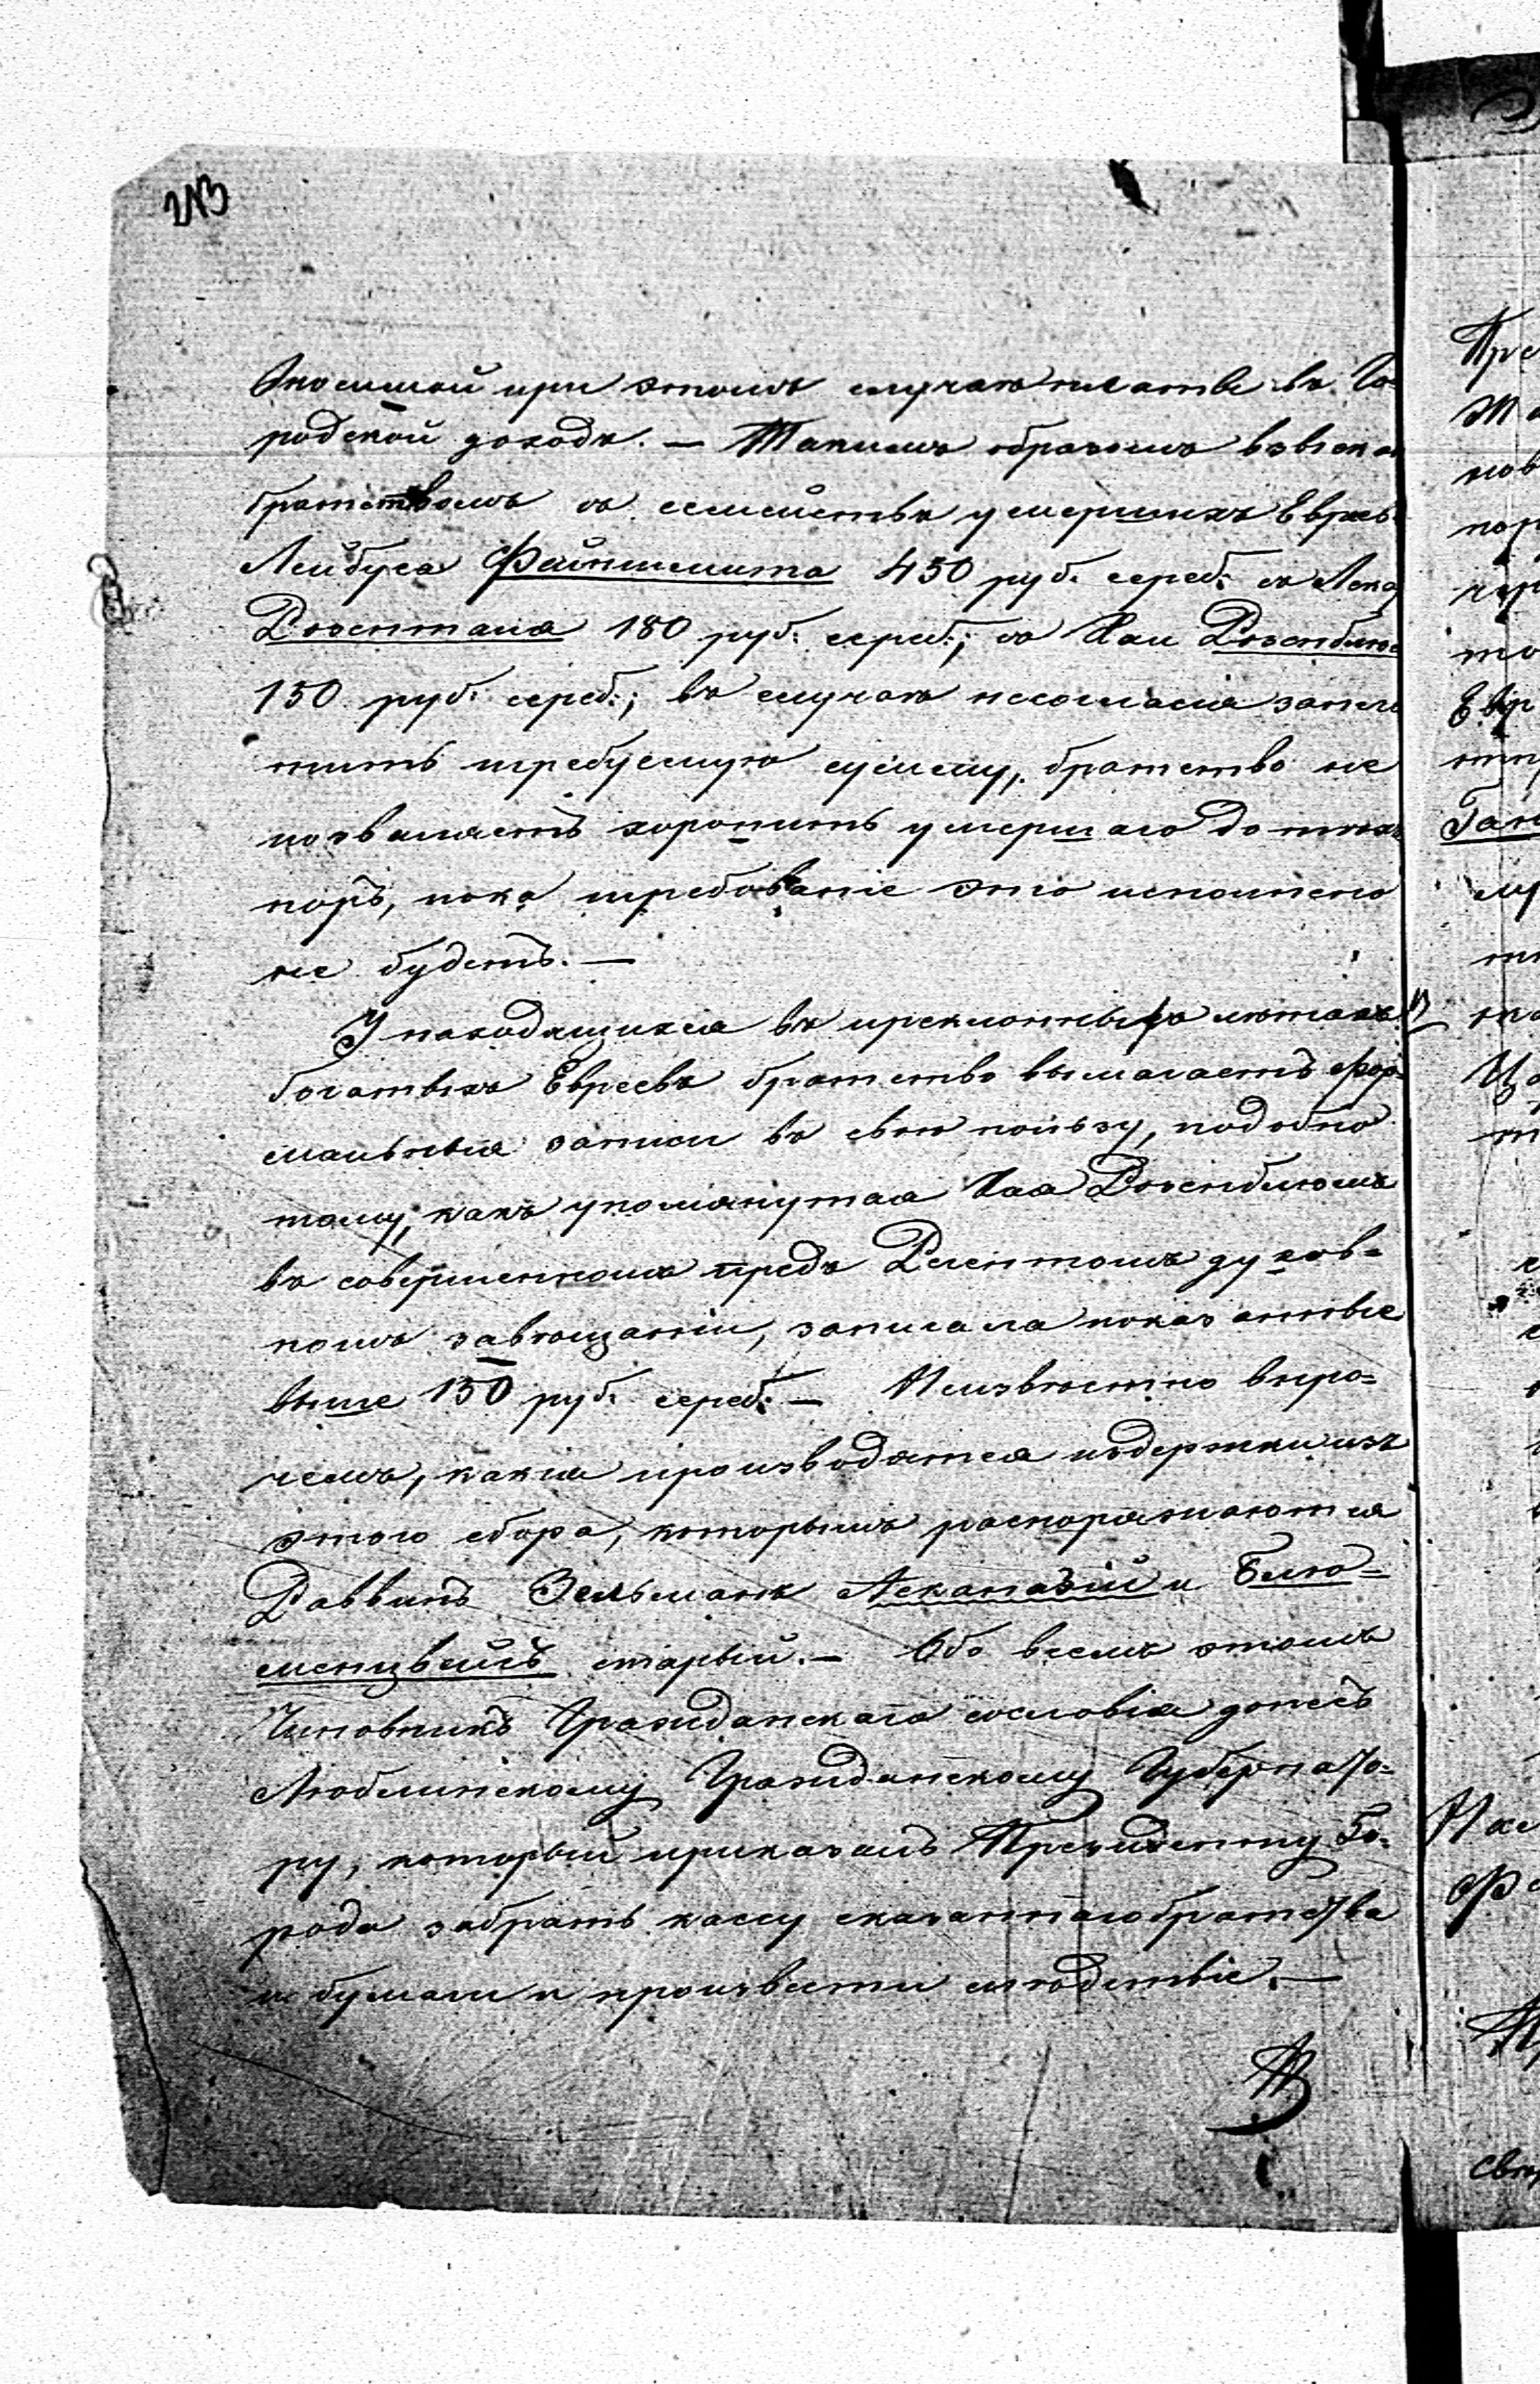 213
вносимой при этомъ случаѣ платы въ Го-
родской доходъ. — Такимъ образомъ взыска
братствомъ съ семействъ умершихъ Еврее
Лейбуса Файншмита 450 руб. сереб: съ Лека
Розенталя 180 руб. сереб:; съ Хаи Розенблю
150 руб. сереб:; въ случаѣ несогласія запла
тить требуемую сумму, братство не
позваляетъ хоронить умершаго до тѣхъ
поръ, пока требованіе это исполнено
не будетъ. —
У находящихся въ преклонныхъ лѣтахъ
богатыхъ Евреевъ братство вымагаетъ фор-
мальныя записи въ свою пользу, подобно
тому, какъ упомянутая Хая Розенблюмъ
въ совершенномъ предъ Реентомъ духов=
номъ завѣщаніи, записала показанные
выше 150 руб. сереб: — Неизвѣстно впро=
чемъ, какія производятся издержки изъ
этого сбора, которымъ распоряжаются
Раввинъ Зельманъ Асканазій и Блю=
менцвейгъ старый. — Обо всемъ этомъ
Чиновникъ Гражданскаго сословія донесъ
Люблинскому Гражданскому Губернато-
ру, который приказалъ Президенту Го-
рода забрать кассу сказаннаго братства
и бумаги и произвести слѣдствіе. —
Пре
нов
пор
чер
то
Евр
Ган